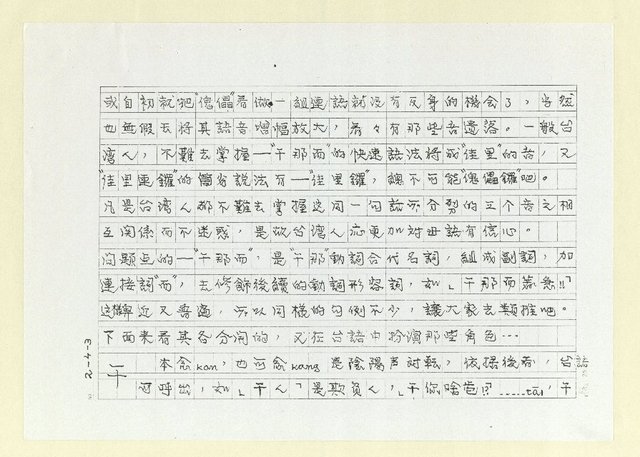 或自初就把"傀儡"看做一組連語就沒有反身的機会了，当然
也無假去將其語音增幅放大，看々有那些音遺落。一般台
湾人，不難去掌握一"干那而"的快速語法將成"佳里"的音，又
"佳里連鑼"的簡省説法有一"佳里鑼"，總不可能傀儡鑼"吧。
凡是台湾人都不難去掌握這同一句話所分劈的三个音之相
互関係而不迷惑，是故台湾人应更加対母語有信心。
問題点的一"干那而"，是"干那"動詞合代名詞，組成副詞，加
連接詞"而"，去修飾後續的動詞形容詞，如」干那而慕急!!「
這樣近又普遍，所以同様的句例不少，讓大家去類推吧。
下面來看其各分開的，又在台語中扮演那些角色…
干 本念kan，也可念kang 是陰陽声対転，依據後者，台語
可呼，如」干人「是欺負人，」干你啥芭!?……tāi，干
2-4-3